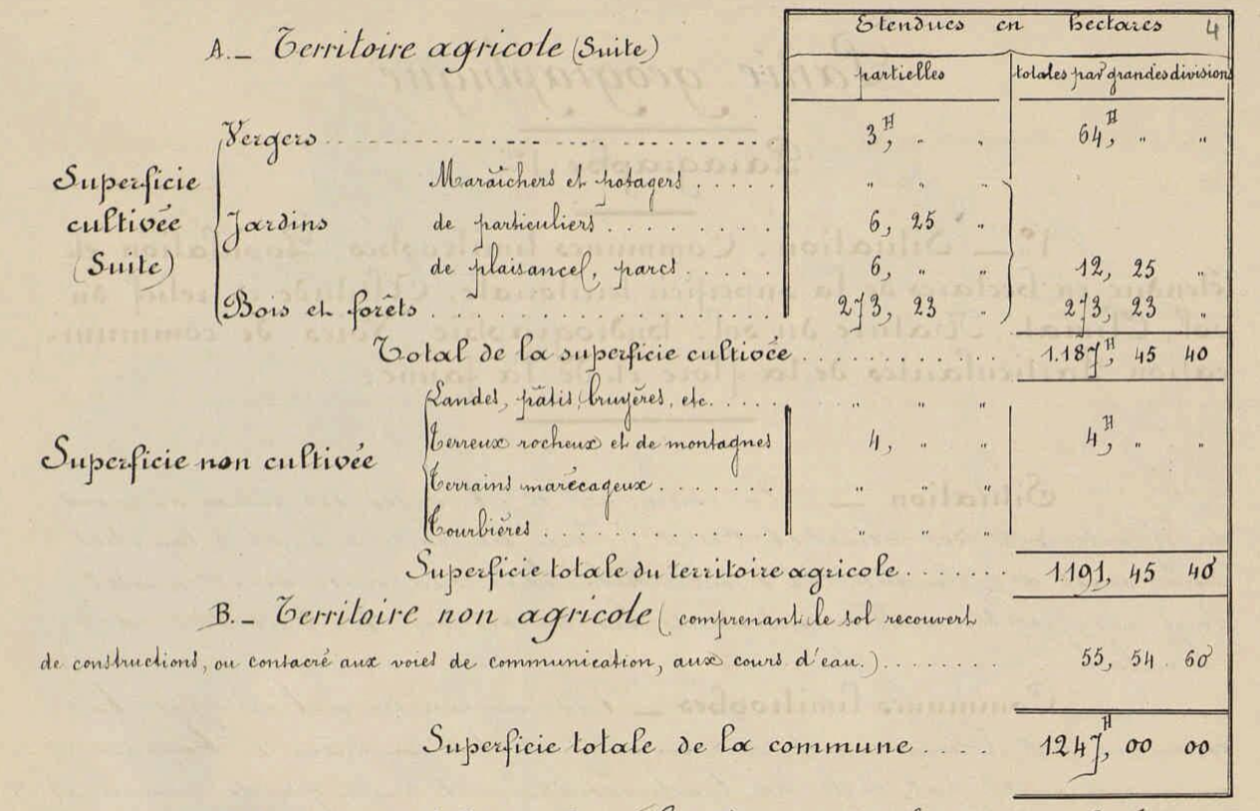 Etendues en hectares 4
A._ Territoire agricole (Suite)
partielles totales par grandes divisions
Vergers 3,H " " 64,H " "
Superficie cultivée (Suite)
Maraîchers et potagers . . . . . " " "
Jardins de particuliers . . . . . . . . . 6, 25 "
de plaisance, parcs . . . . . 6, " " 12, 25 "
Bois et forêts . . . . . . . . . . . . . . . . . . 273, 23 " 273, 23 "
Total de la superficie cultivée . . . . . . . . . . 1.187,H 45 40
Landes, pâtis, bruyères, etc. . . . . " " "
Superficie non cultivée
Terreux rocheux et de montagnes 4, " " 4,H " "
Terrains marécageux . . . . . . . " " "
Tourbières . . . . . . . . . . . . " " "
Superficie totale du territoire agricole . . . . . . . 1191, 45 40
B._ Territoire non agricole (comprenant le sol recouvert
de constructions, ou consacré aux voies de communication, aux cours d'eau.) . . . . . . . . 55, 54 60
Superficie totale de la commune . . . . 1247,H 00 00